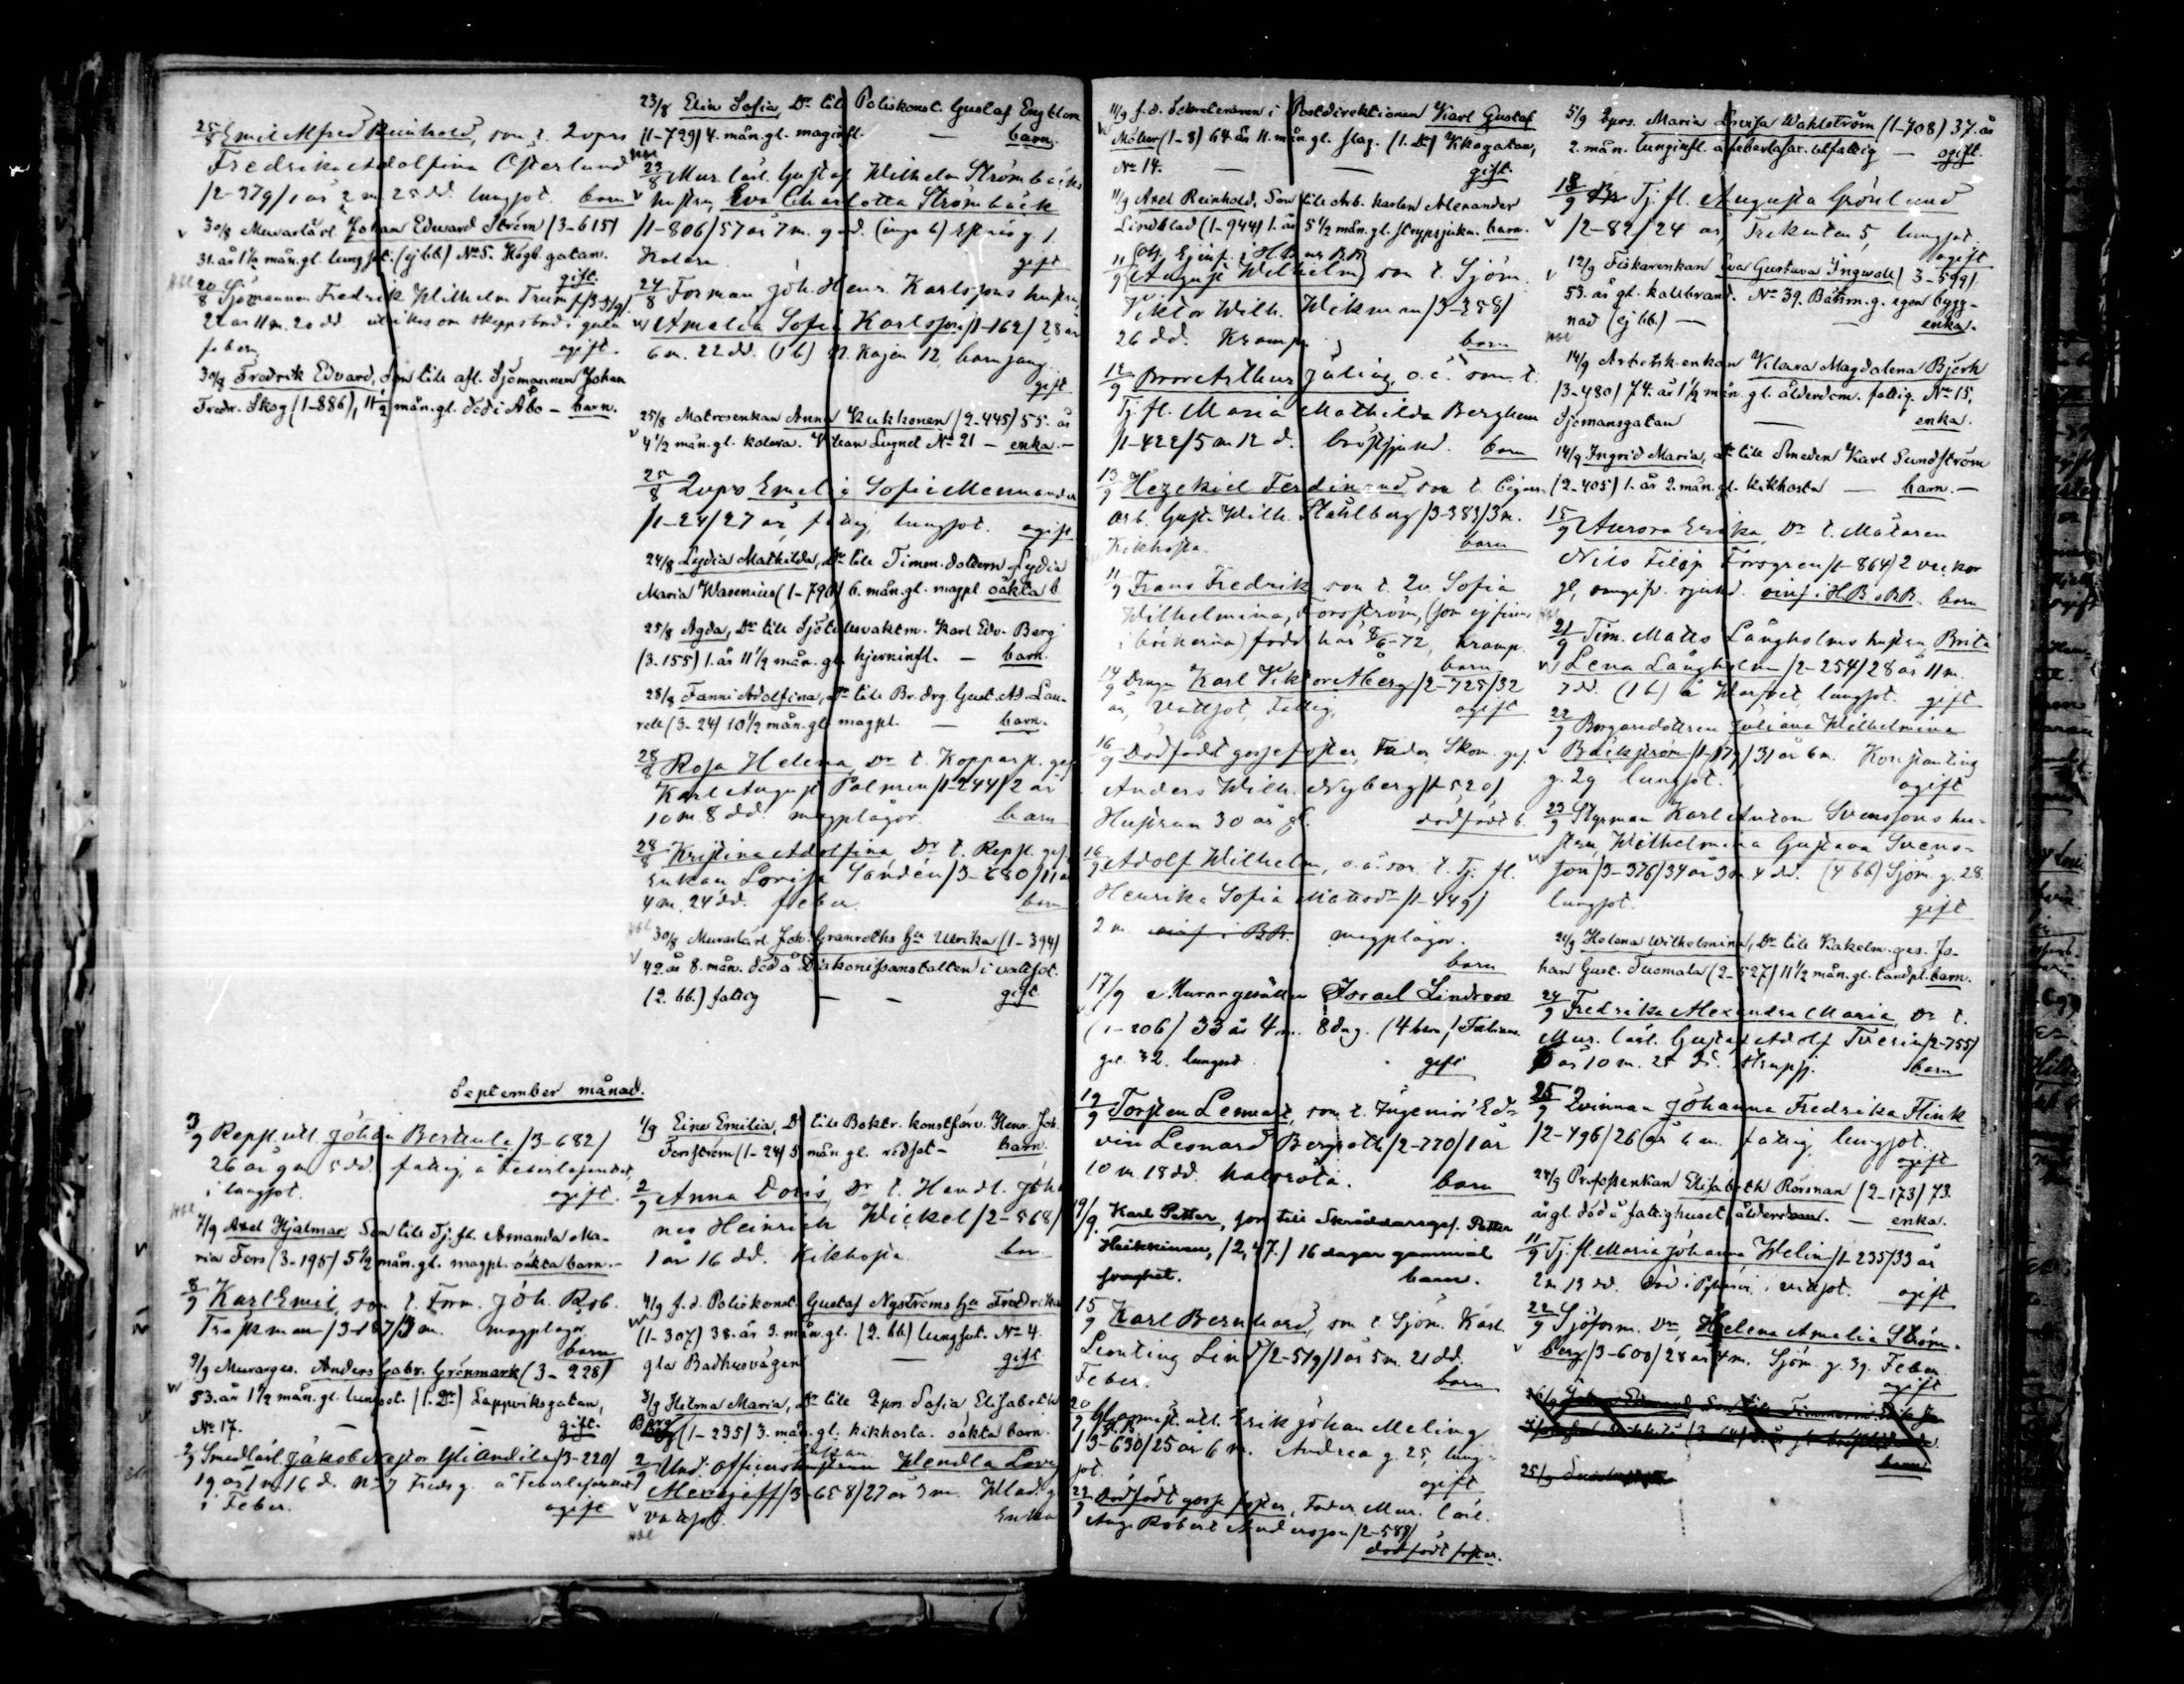 25/8 Emil Alfred Reinhold, son t. Qvprs
Fredrika Adolfina Österlund
/2-379/ 1 år 2 m. 25 dd. lungsot. barn
30/8 Murarlärl. Johan Edvard Ström (3-615)
31. år 1½ mån. gl. lungsot. (ej bb.) No 5. Högb. gatan.
gift.
20/8 Sjömannen Fredrik Wilhelm Trumf
22 år 11 m. 20 dd. utrikes om skeppsbord i gula
febern ogift.
30/8 Fredrik Edvard, Son till afl. Sjömannen Johan
Fredr. Skog (1-886), 11½ mån. gl. död i Åbo – barn.
September månad.
3/9 Repsl. utl. Johan Berthula /3-682/
26 år 9 m 5 dd. fattig, å Feberlasarettet,
i lungsot. ogift.
7/9 Axel Hjalmar, Son till Tj. fl. Amanda Ma-
ria Fors (3-195) 5½ mån. gl. magpl. oäkta barn.–
8/9 Karl Emil, son t. Form. Joh. Rob.
Traskman /3-187/ 3 m. magplågor.
barn
9/9 Murarges. Anders Gabr. Grönmark (3-228)
53. år 1½ mån. gl. lungsot. (1. Dr) Lappviksgatan,
No 17. – – gift.
2/9 Smedlärl. Jakob Nestor /3-220/
19 år 1 m 16 d. No 7 Fredsg. å Feberlasarettet
i Feber. ogift
23/8 Elin Sofia, Dr till Poliskonst. Gustaf Engblom
(1-729) 4. mån. gl. maginfl. – barn.
23/8 Mur. lärl. Gustaf Wilhelm Strömbäcks
hustru, Eva Charlotta Strömbäck
/1-806/ 57 år 7 m. 9 dd. (inga b)
Kolera. gift
24/8 Forman Joh. Henr. Karlssons hustru
Amalia Sofia Karlsson /1-162/ 28 år
6 m. 22 dd. (1 b) N. Kajen 12 barnsäng
gift
25/8 Matrosenkan Anna Kukkonen /2-445/ 55. år
4½ mån. gl. kolera. Villan Lugnet No 21 – enka.–
25/8 Qvprs Emelie Sofie Mennander
/1-24/ 27 år, fattig, lungsot. ogift
24/8 Lydia Mathilda, Dr till Timm. dottern Lydia
Maria Wasenius (1-790) 6. mån. gl. magpl. oäkta b.
25/8 Agda, Dr till Sjötullsvaktm. Karl Edv. Berg
(3-155) 1. år 11½ mån. gl. hjerninfl. – barn.
28/8 Fanni Adolfina, Dr till Br. drg. Gust. Ad. Lau-
rell (3-24) 10½ mån. gl. magpl. – barn.
28/8 Rosa Helena, Dr t. Kopparsl. ges.
Karl August Palmren /1-244/ 2 år
10 m. 8 dd. magplågor. barn
28/8 Kristina Adolfina, Dr t. Repsl. ges.
Enkan Lovisa Sandén /3-680/ 11 år
4 m. 24 dd. feber. barn
30/8 Murarlärl. Joh. Granroths Hu Ulrika (1-394)
42. år 8. mån. död å Diakonissanstalten i vattsot.
(2. bb.) fattig – – gift.
1/9 Eine Emilia, Dr till Boktr. konstförv. Henr. Joh.
Forsström (1-24) 5 mån. gl. rödsot – barn.
2/9 Anna Doris, Dr t. Handl. Joha
nes Heinrich Wickel /2-568/
1 år 16 dd. Kikhosta barn
4/9 f. d. Poliskonst. Gustaf Nyströms Hu Fredrika
(1-307) 38. år 3. mån. gl. (2. bb.) lungsot. No 4.
gla Badhusvägen – gift.
3/9 Hilma Maria, Dr till Qprs. Sofia Elisabeth
Berg (1-235) 3. mån. gl. kikhosta. oäkta barn.
2/9 Und. officers enkan Hendla Lovisa
/3-658/ 27 år 3 m. Wlad. g
vattsot. Enka
11/9 f. d. Sekreteraren i Postdirektionen Karl Gustaf
Möller (1-8) 64. år 11. mån. gl. slag. (1. Dr) Vkagatan,
No 14. – – gift.
11/9 Axel Reinhold, Son till Arb. karlen Alexander
Lindblad (1-944) 1. år 5½ mån. gl. strypsjuka. barn.
11/9 August Wilhelm, son t. Sjöm.
Viktor Wilh. Wikman /3-258/
26 dd. Kramp. barn
12/9 Bror Arthur Julius, o. ä. son t.
Tj. fl. Maria Mathilda Berghem
/1-422/ 5 m 12 d. bröstsjukd. barn
13/9 Hezekiel Ferdinand, son t. Cigarr.
arb. Gust. Wilh. Ståhlberg /3-383/ 3 m.
Kikhosta. barn
11/9 Frans Fredrik, son t. Qv. Sofia
Wilhelmina Forsström, (som ej finns
i böckerna) född här 8/6-72, kramp.
barn
14/9 Dräng. Karl Viktor Åberg /2-725/ 32
år, Vattsot, Fattig, ogift
16/9 Dödfödt gossefoster, Fader, Skom. ges.
Anders Wilh. Nyberg /1-520/
Hustrun 30 år gl. dödfödt b.
16/9 Adolf Wilhelm, o. ä. son t. Tj. fl.
Henrika Sofia Mattsdr /1-449/
2 m. magplågor.
barn
17/9 Murargesällen Israel Lindroos
(1-206) 33 år 4 m. 8 dag. (4 barn) Fabians
gt. 32. lungsot. gift
19/9 Torsten Lennart, son t. Ingeniör Ed-
vin Leonard Bergroth /2-770/ 1 år
10 m 18 dd. halsröta. barn
19/9. Karl Petter, son till Skräddaregs. Petter
Heikkinen, /2,47./ 16 dagar gammal
svaghet. barn.
15/9 Karl Bernhard, son t. Sjöm. Karl
Leonting Lind /2-519/ 1 år 5 m. 21 dd.
Feber. barn
20/9 Glasmäst. utl. Erik Johan Meling
/3-630/ 25 år 6 m. Andrea g. 25, lung-
sot. ogift
22/9 Dödfödt gosse foster, Fader Mur. lärl.
Aug. Robert Andersson /2-588/
dödfödt foster.
5/9 Qprs. Maria Lovisa Wahlström (1-708) 37. år
2. mån. lunginfl. å feberlasar. utfattig – ogift.
13/9 Tj. fl. Augusta Grönlund
/2-82/ 24 år, Trekanten 5, lungsot.
ogift
12/9 Fiskarenkan Eva Gustava Ingwall (3-599)
53. år gl. kallbrand. No 39. Båtsm. g. egen bygg-
nad (ej bb.) – – enka.
14/9 Arbetsk. enkan Klara Magdalena Björk
/3-480/ 74. år 1½ mån. gl. ålderdom. fattig. No 15,
Sjömansgatan – enka.
14/9 Ingrid Maria, Dr till Smeden Karl Sundström
(2-405) 1. år 2. mån. gl. kikhosta – barn.–
15/9 Aurora Erika, Dr t. Målaren
Nils Filip Forsgren /1-864/ 2 veckor
gl, onngifv. sjukd. barn
21/9 Tim. Matts Långholms hustru Brita
Lena Långholm /2-254/ 28 år 11 m.
7 dd. (1 b) å Warfvet, lungsot. gift
22/9 Borgaredottren Juliana Wilhelmina
Bäckström /1-179/ 31 år 6 m. Konstantins
g. 29 lungsot. ogift
23/9 Styrman Karl Anton Svenssons hu-
stru, Wilhelmina Gustava Svens-
son /3-376/ 34 år 3 m. 4 dd. (4 bb) Sjöm. g. 28.
lungsot. gift
21/9 Helena Wilhelmina, Dr till Kakelm. ges. Jo-
han Gust. Tuomala (2-527) 11½ mån. gl. tandpl. barn.
24/9 Fredrika Alexandra Maria, Dr t.
Mur. lärl. Gustaf Adolf Tverin /2-755/
år 10 m. 25 dd. Strupsj. barn
25/9 Qvinnan Johanna Fredrika Flink
/2-796/ 26 år 6 m. fattig, lungsot.
ogift
24/9 Profossenkan Elisabeth Rösman (2-173) 73.
år gl. död å fattighuset, ålderdom. – enka.
11/9 Tj. fl. Maria Johanna Welin /1-235/ 33 år
2 m 19 dd. död i vattsot. ogift
22/9 Sjöform. Dr, Helena Amalia Ström-
berg /3-600/ 28 år 4 m. Sjöm. g. 39. Feber
ogift
barn.
25/9